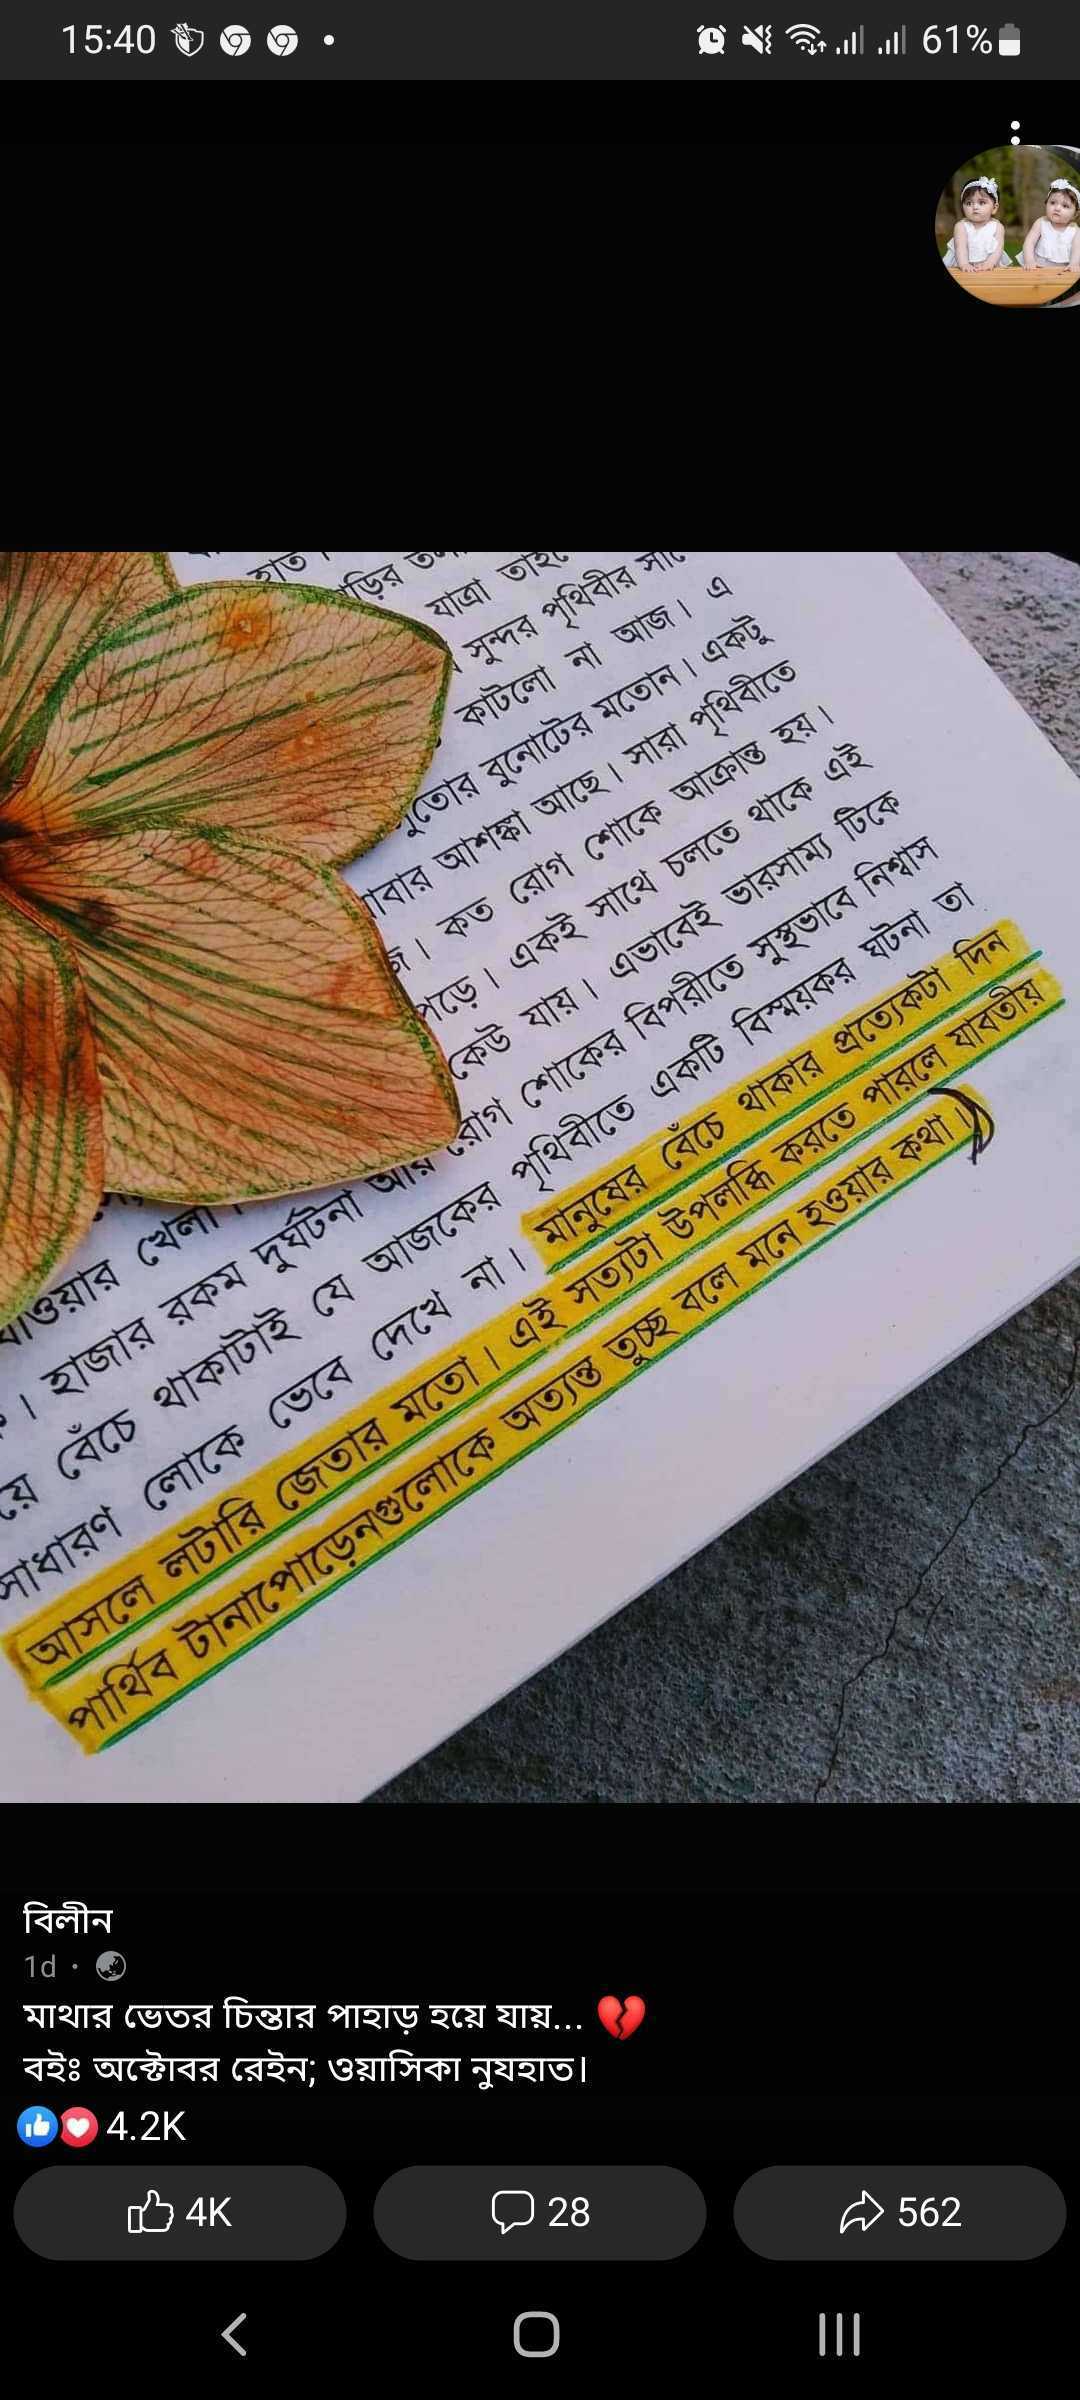 15:40
61%
হাত।
যাত্রা
সুন্দর পৃথিবীর
কাটলো না আজ। এ
বুনোটের মতোন। একটু
আশঙ্কা আছে। সারা পৃথিবীতে
। কত রোগ শোকে আক্রান্ত হয়।
পড়ে। একই সাথে চলতে থাকে এই
যাওয়ার খেলা। কেউ যায়। এভাবেই ভারসাম্য টিকে
। হাজার রকম দুর্ঘটনা আর রোগ শোকের বিপরীতে সুস্থভাবে নিশ্বাস
বেঁচে থাকাটাই যে আজকের পৃথিবীতে একটি বিস্ময়কর ঘটনা তা
সাধারণ লোকে ভেবে দেখে না। মানুষের বেঁচে থাকার প্রত্যেকটা দিন
আসলে লটারি জেতার মতো। এই সত্যটা উপলব্ধি করতে পারলে যাবতীয়
পার্থিব টানাপোড়েনগুলোকে অত্যন্ত তুচ্ছ বলে মনে হওয়ার কথা।
বিলীন
1d
মাথার ভেতর চিন্তার পাহাড় হয়ে যায়...
বইঃ অক্টোবর রেইন; ওয়াসিকা নুযহাত।
4.2K
4K
28
562